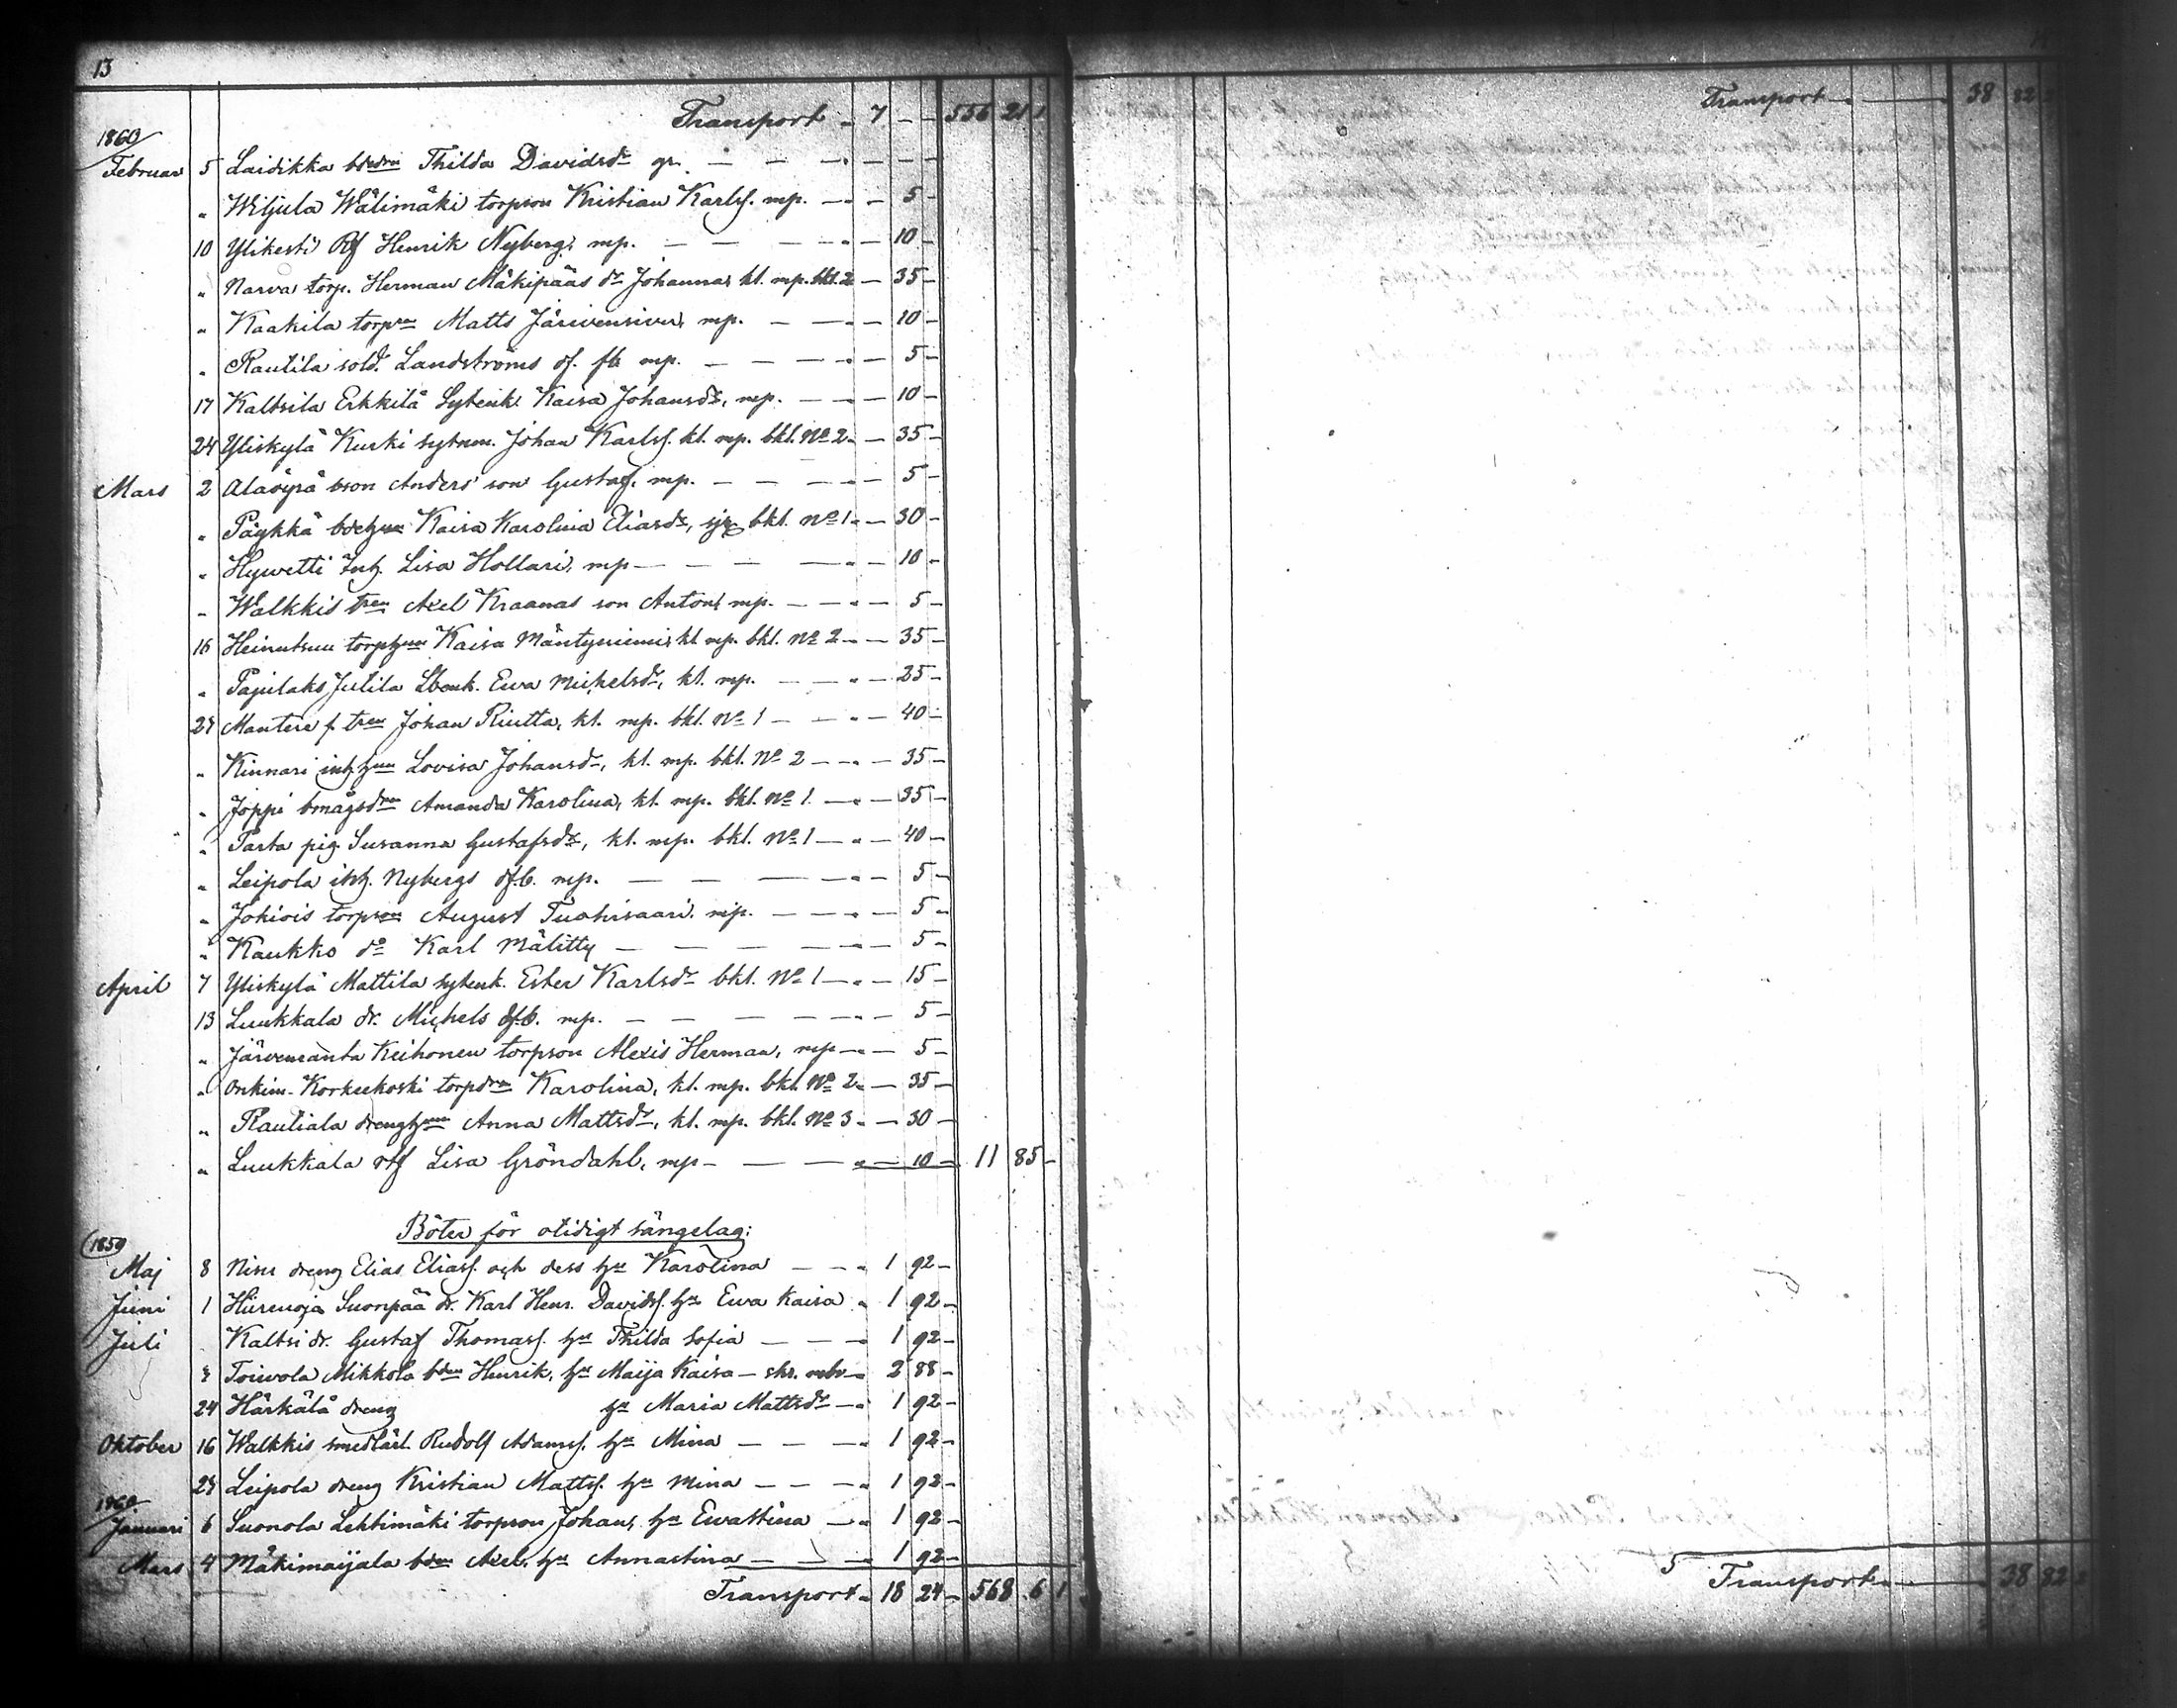 13
Transport „ 7 — — 556 21 1
1860
Februar 5 Laidikka bdrdrn Thilda Davidsdr gr. — — — „ — — —
„ Wiljula Wälimäki torpson Kristian Karlss. mp. — „ — 5 —
10 Ylikesti Rf Henrik Nyberg, mp. — — — „ — 10 —
„ Narva torp. Herman Mäkipääs dr Johanna, kl. mp. bkl. 2 — 35 —
„ Kaakila torprn Matts Järivensivu, mp. — — „ — 10 —
„ Rautila sold. Landströms of. fb mp. — — — „ — 5 —
17 Kaltsila Erkkilä Sytenk. Kaisa Johansdr, mp. — — „ — 10 —
24 Yliskylä Kurki sytnm. Johan Karlss. kl. mp. bkl. No 2 „ — 35 —
Mars 2 Alaöyrä bson Anders son Gustaf, mp. — — — „ — 5 —
„ Päykkä Kaisa Karolina Eliasdr, bkl. No 1 „ — 30 —
„ Hywetti Inh. Lisa Hollari, mp — — — — „ — 10 —
„ Walkkis tren Axel Kraanas son Anton, mp. — — „ — 5 —
16 Heinutsuu torphun Kaisa Mäntyniemi, kl mp. bkl. No 2 „ — 35 —
„ Pajulaks Jutila Lbenk. Ewa Michelsdr, kl. mp. — — „ — 25 —
24 Mantere f. tren Johan Riutta, kl. mp. bkl. No 1 — — „ — 40 —
„ Kinnari inhhun Lovisa Johansdr, kl. mp. bkl. No 2 — — „ — 35 —
„ Joppi bmågsdrn Amanda Karolina, kl. mp. bkl. No 1. — „ — 35 —
„ Parta pig. Susanna Gustafsdr, kl. mp. bkl. No 1 — „ — 40 —
„ Leipola inh. Nybergs dfb. mp. — — — — „ — 5 —
„ Jokiois torpson August Tuohisaari, mp. — — — „ — 5 —
„ Kaukko do Karl Mälitty — — — — „ — 5 —
April 7 Yliskylä Mattila sytenk. Ester Karlsdr bkl. No 1 — „ — 15 —
13 Luukkala dr. Michels dfb. mp. — — — — „ — 5 —
„ Järvenranta Keihonen torpson Alexis Herman, mp — „ — 5 —
„ Onkim. Korkeekoski torpdrn Karolina, kl. mp. bkl. No 2 „ — 35 —
„ Rautiala drenghun Anna Mattsdr, kl. mp. bkl. No 3 „ — 30 —
„ Luukkala rtf Lisa Gröndahl, mp — — — „ — 10 — 11 85 —
Böter för otidigt sängelag:
1859
Maj 8 Nisu dreng Elias Eliass. och dess hu Karolina — — „ 1 92 —
Juni 1 Hiirenoja Suonpää dr. Karl Henr. Davidss. hu Ewa Kaisa „ 1 92 —
Juli Kaltsi dr. Gustaf Thomass. hu Thilda Sofia — — — „ 1 92 —
Toiwola Mikkola bden Henrik, hu Maija Kaisa — skr. „ 2 88 —
24 Härkälä dreng hu Maria Mattsdr — „ 1 92 —
Oktober 16 Walkkis smedlärl. Rudolf Adamss. hu Mina — — — „ 1 92 —
24 Leipola dreng Kristian Mattss. hu Mina — — — „ 1 92 —
1860
Januari 6 Suonola Lehtimäki torpson Johan, hu Ewastina — „ 1 92 —
Mars 4 Mäkimaijala bden Axel, hu Annastina — — — „ 1 92 —
Transport „ 18 24 — 568 6 1
Transport „ — 38 82
5
Transport „ — 38 82